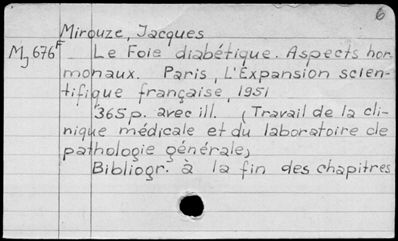 6
Mirouze, Jacques
Mj 676F Le Foie diabétique. Aspects hor
monaux. Paris, L'Expansion scien-
tifique française, 1951
365p. avec ill. (Travail de la cli-
nique médicale et du laboratoire de
pathologie générale)
Bibliogr. à la fin des chapitres